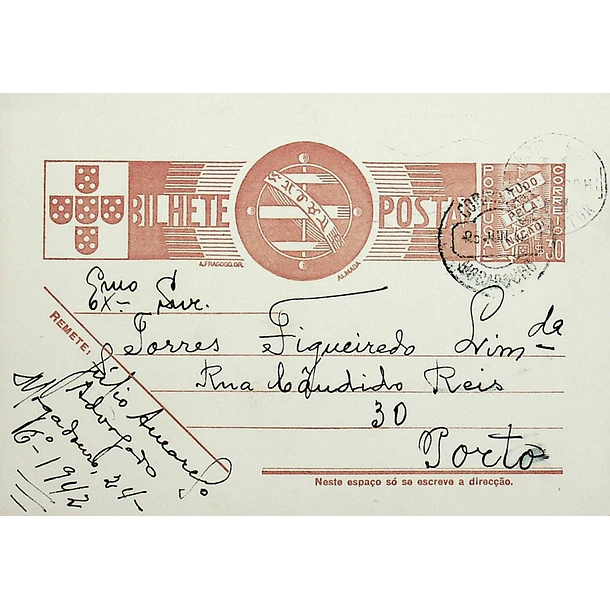 BILHETE POSTAL
PORTUGAL CORREIO
TUDO
PELA
NAÇÃO
30
A. FRAGOSO, GR.
ALMADA
Exmo Snr.
Torres Figueiredo Lim.da
Rua Cândido Reis
30
Porto
REMETE:
Júlio
Advogado
Mogadouro, 24-
6º-1942
Neste espaço só se escreve a direcção.